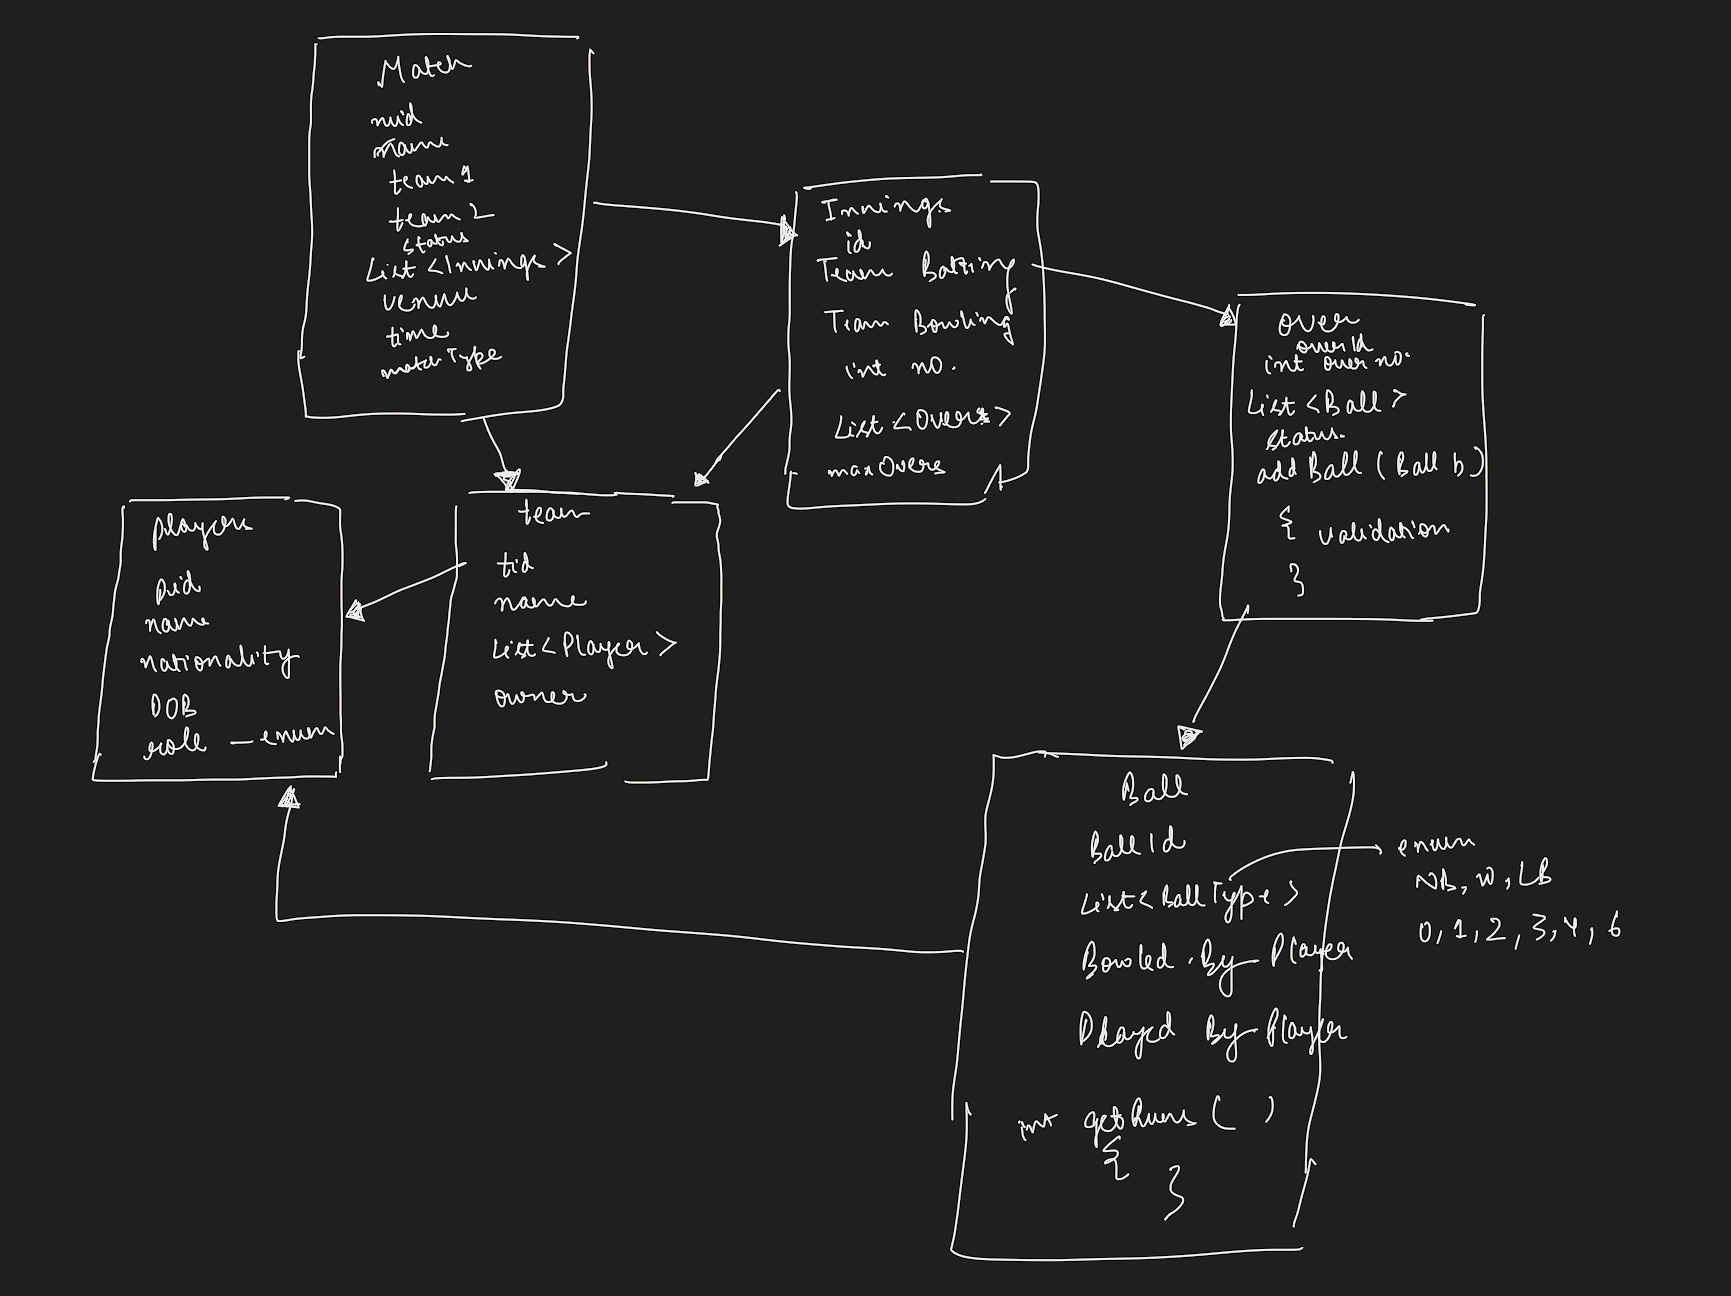 Match
mid
name
team 1
team 2
status
List <Innings>
venue
time
matchType
Innings
id
Team Batting
Team Bowling
int no.
List <Overs>
maxOvers
over
overId
int over no.
List <Ball>
status.
addBall (Ball b)
{ validation
}
players
pid
name
nationality
DOB
role – enum
team
tid
name
List <Player>
owner
Ball
Ball Id
List <Ball Type>
Bowled By Player
Played By Player
int getRuns ( )
{
}
enum
NB, W, LB
0, 1, 2, 3, 4, 6